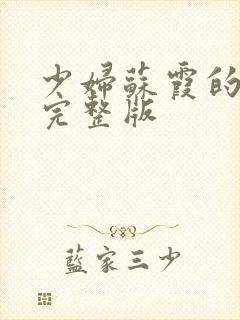 少婦蘇霞的
完整版
藍家三少